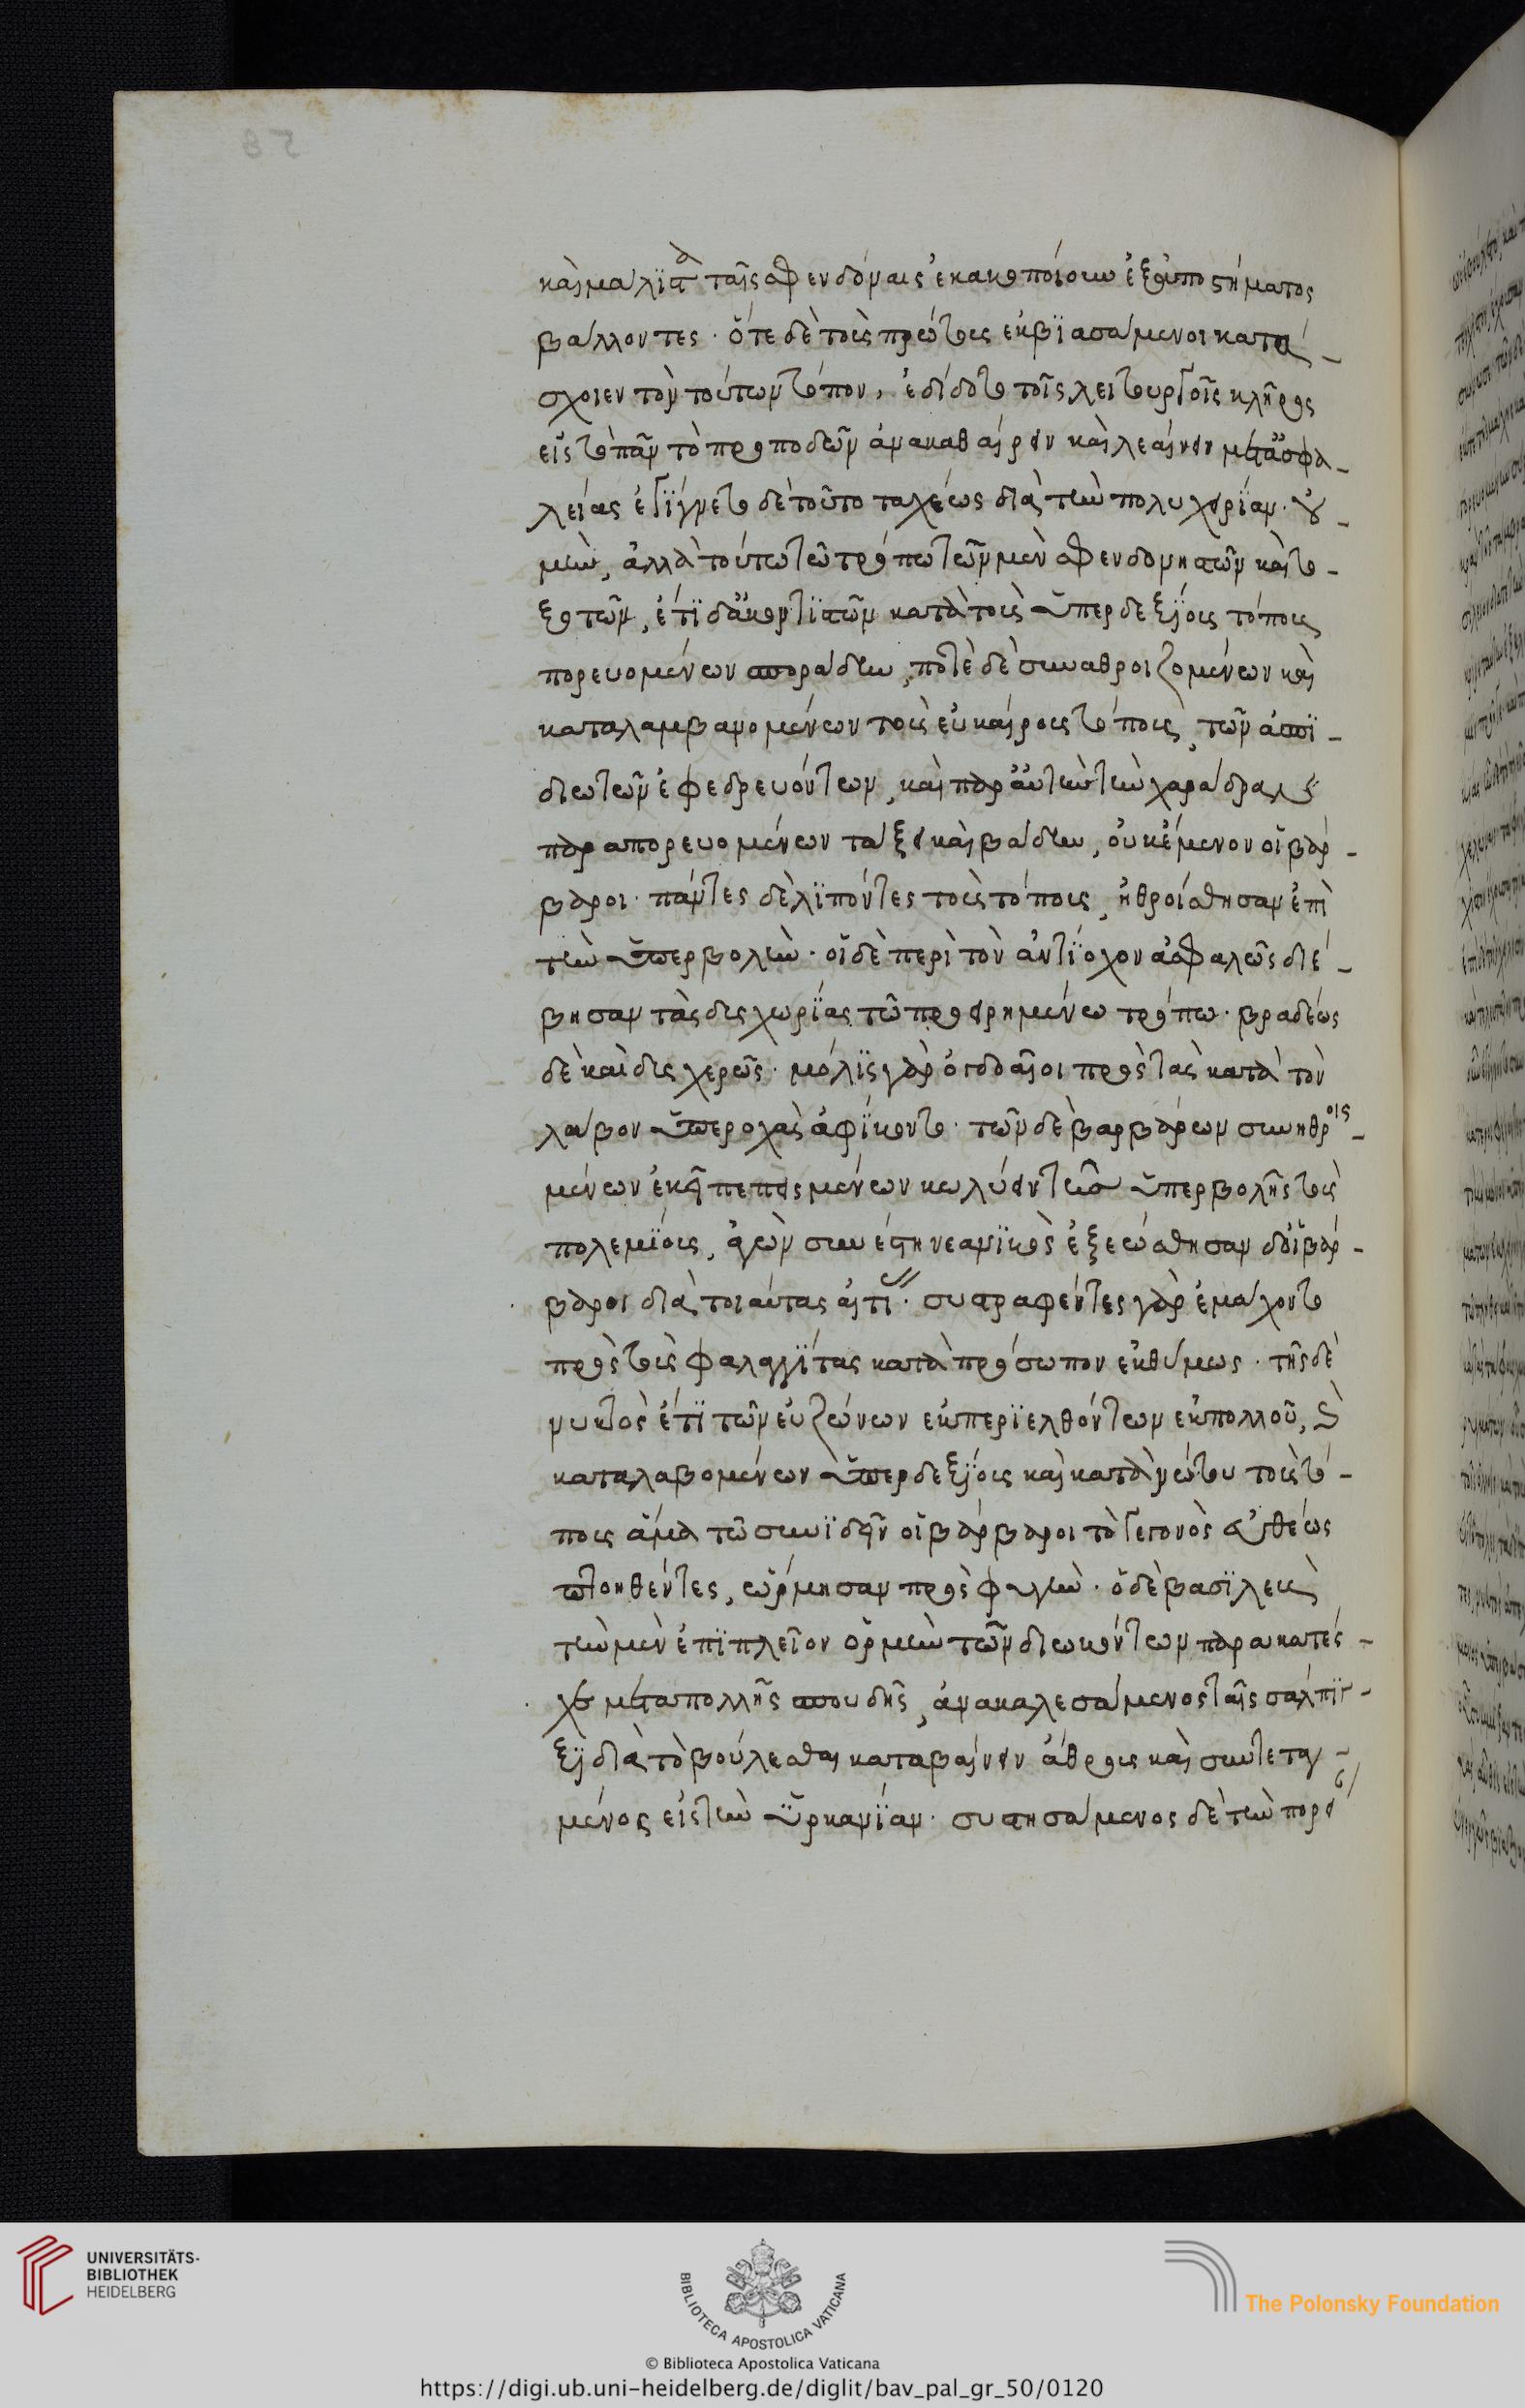 καὶ μάλιστα ταῖς σφενδόναις ἐκακοποίουν ἐξ ἀποστήματος
βάλλοντες · ὅτε δὲ τοὺς πρώτους ἐκβϊασάμενοι κατα-
σχοιεν τὸν τούτων τόπον, ἐδίδοτο τοῖς λειτουργοῖς κλῆρος
εἰς τὸ πᾶν τὸ προποδῶν ἀνακαθαίρειν καὶ λεαίνειν μετ' ἀσφα-
λείας ἐγίγνετο δὲ τοῦτο ταχέως διὰ τὴν πολυχειρίαν · οὐ-
μὴν, ἀλλὰ τούτω τῶ τρόπω τῶν μὲν σφενδονητῶν καὶ το-
ξοτῶν, ἔτϊ δ' ἀκοντϊστῶν κατὰ τοὺς ὑπερδεξίους τόπους
πορευομένων σποράδην, ποτὲ δὲ συναθροιζομένων καὶ
καταλαμβανομένων τοὺς εὐκαίρους τόπους, τῶν ἀσπϊ-
διωτῶν ἐφεδρευόντων, καὶ παρ' αὐτὴν τὴν χαράδραν
παραπορευομένων τάξει καὶ βάδην, οὐκ ἔμενον οἱ βάρ-
βαροι · πάντες δὲ λϊπόντες τοὺς τόπους, ἠθροίσθησαν ἐπὶ
τὴν ὑπερβολὴν · οἱ δὲ περὶ τὸν ἀντίοχον ἀσφαλῶς διέ-
βησαν τὰς δυσχωρίας τῶ προειρημένω τρόπω · βραδέως
δὲ καὶ δυσχερῶς · μόλϊς γὰρ ὀγδοαῖοι πρὸς τὰς κατὰ τὸν
λάβον ὑπεροχὰς ἀφίκοντο · τῶν δὲ βαρβάρων συνηθροισ-
μένων ἐκεῖ πεπεισμένων κωλύειν τῆς ὑπερβολῆς τοὺς
πολεμίους, ἀγὼν συνέστη νεανϊκὸς ἐξεώσθησαν δ' οἱ βάρ-
βαροι διὰ τοιαύτας αἰτίας · συστραφέντες γὰρ ἐμάχοντο
πρὸς τοὺς φαλαγγίτας κατὰ πρόσωπον ἐκθύμως · τῆς δὲ
νυκτὸς ἔτϊ τῶν εὐζώνων ἐκπερϊελθόντων ἐκ πολλοῦ, καὶ
καταλαβομένων ὑπερδεξίους καὶ κατὰ νώτου τοὺς τό-
πους ἅμα τῶ συνϊδεῖν οἱ βάρβαροι τὸ γεγονὸς εὐθέως
πτοηθέντες, ὥρμησαν πρὸς φυγὴν · ὁ δὲ βασϊλεὺς
τὴν μὲν ἐπϊπλεῖον ὁρμὴν τῶν διωκόντων παρακατές-
χε μετὰ πολλῆς σπουδῆς, ἀνακαλεσάμενος ταῖς σάλπιγ-
ξϊ διὰ τὸ βούλεσθαι καταβαίνειν ἀθρόους καὶ συντεταγ-
μένος εἰς τὴν ὑρκανίαν · συστησάμενος δὲ τὴν πορεί